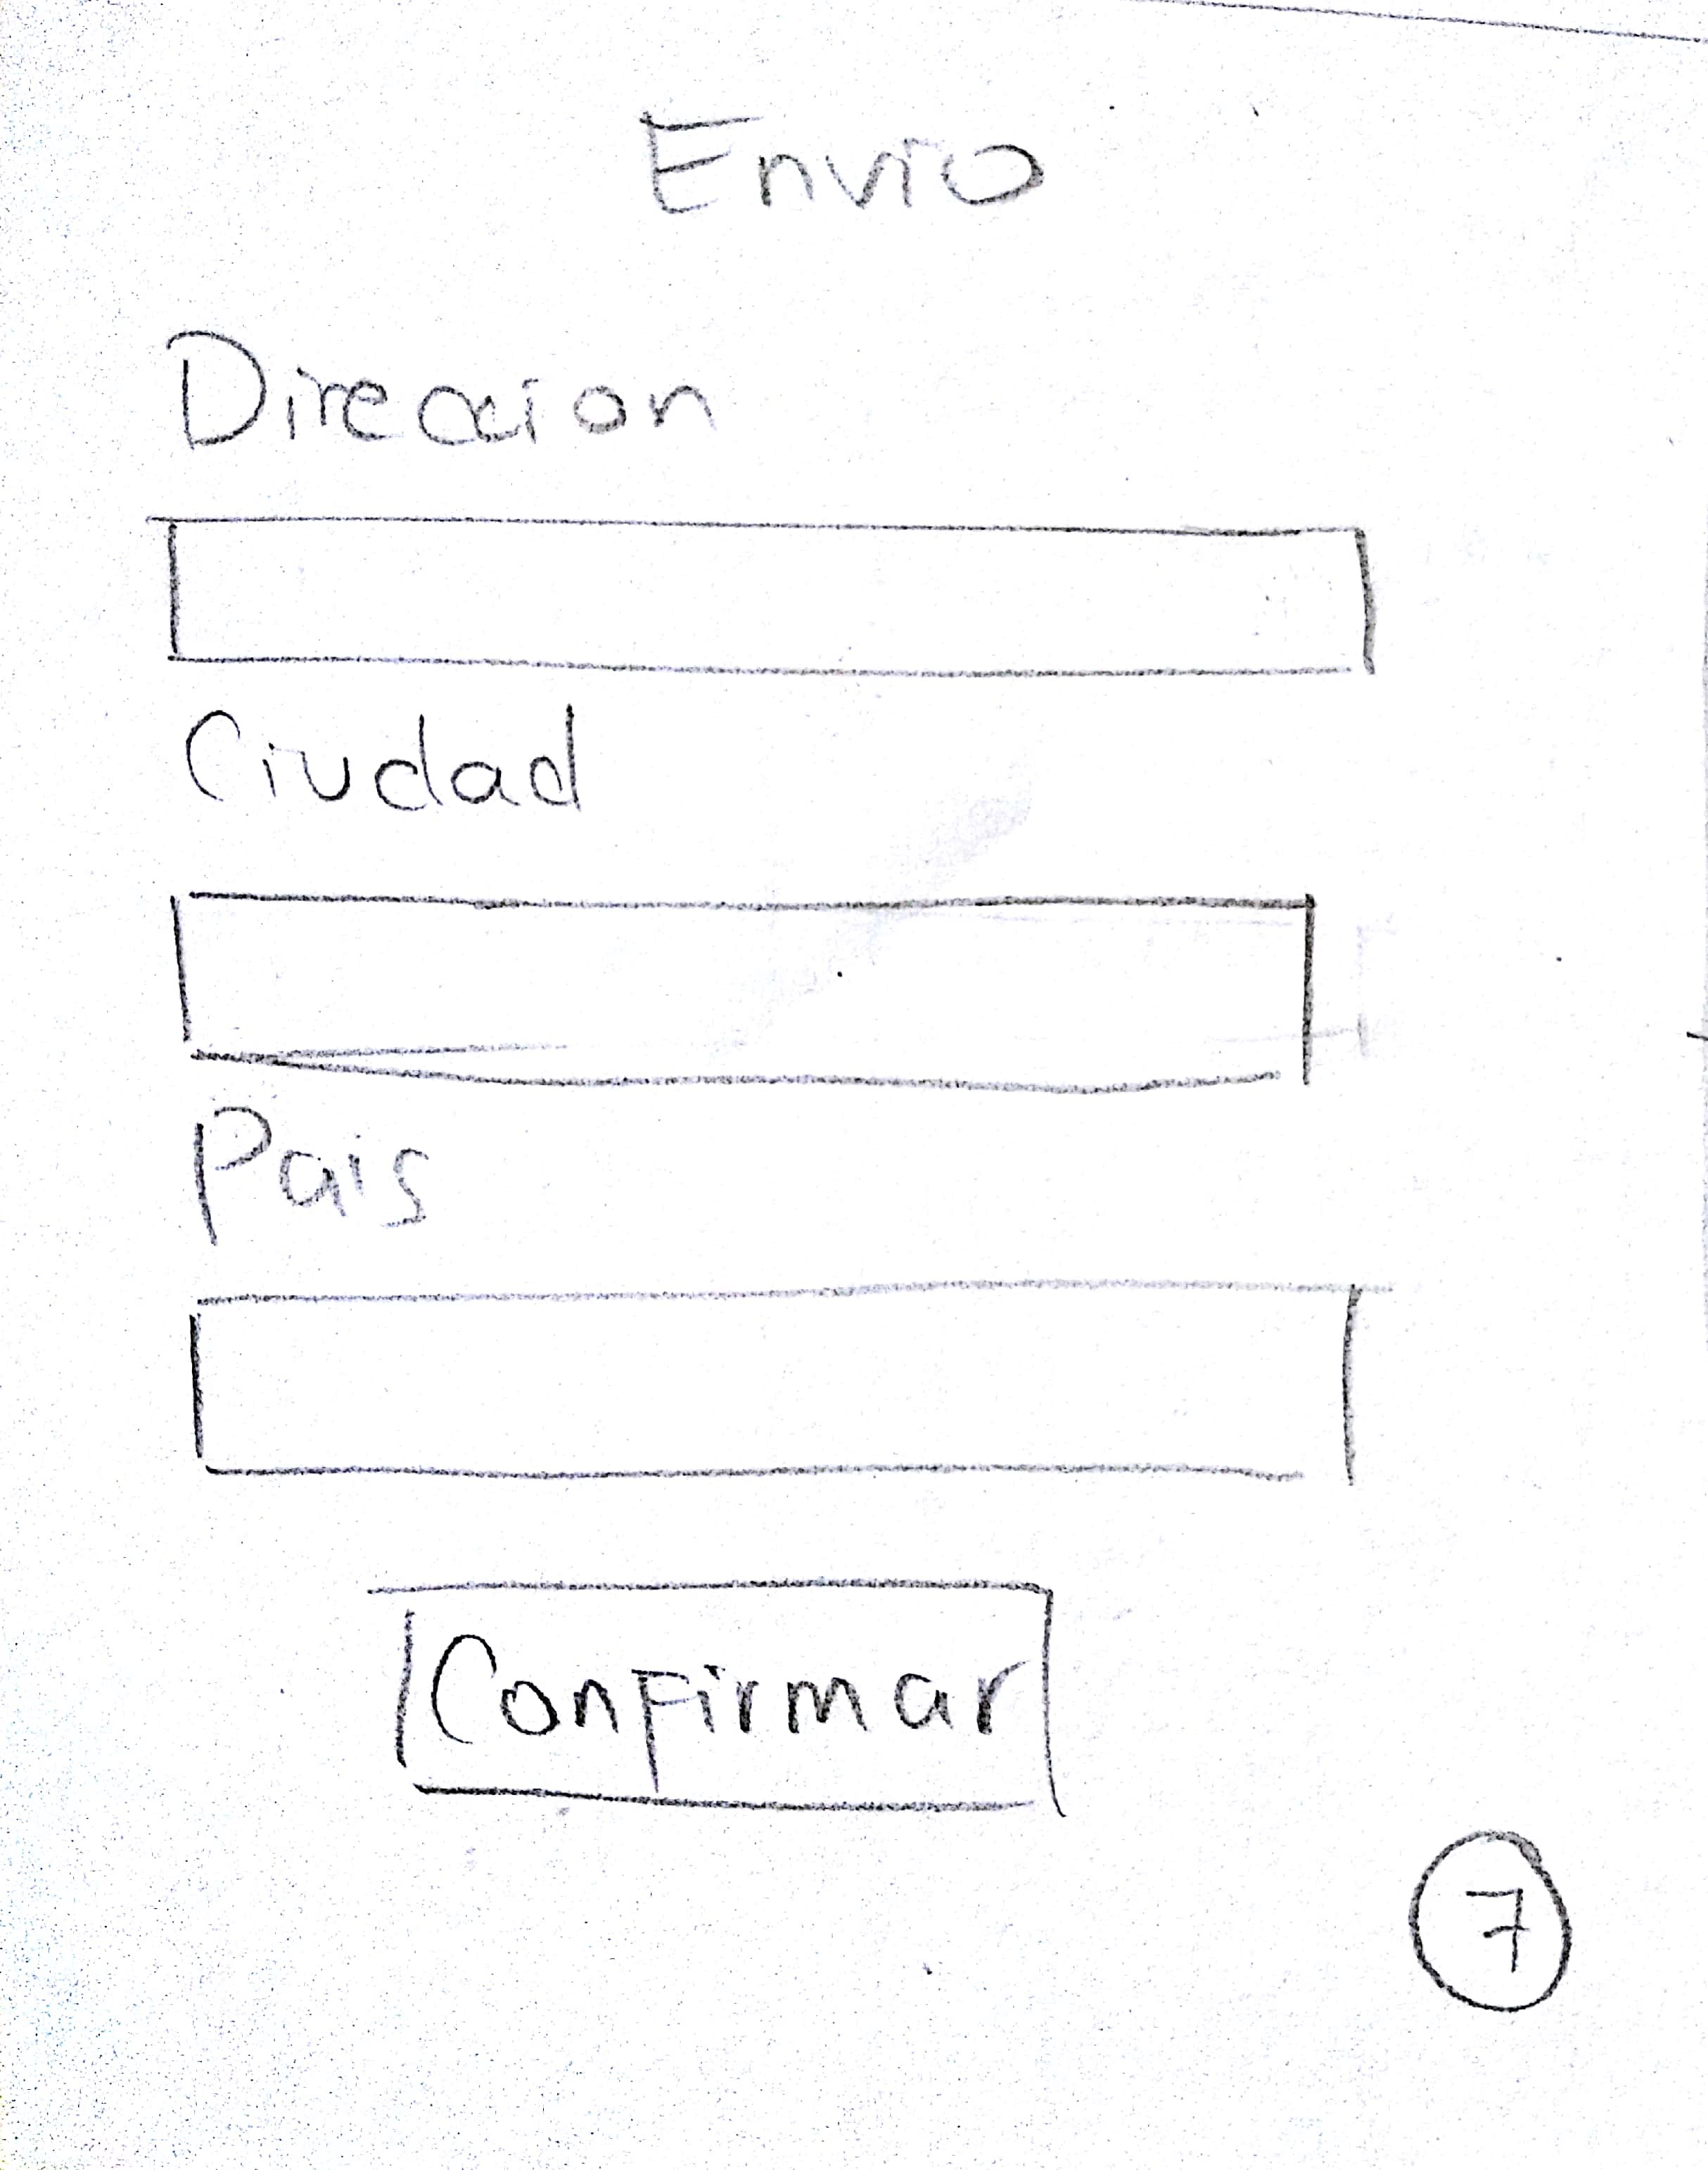 Envio
Direccion
Ciudad
Pais
Confirmar
7